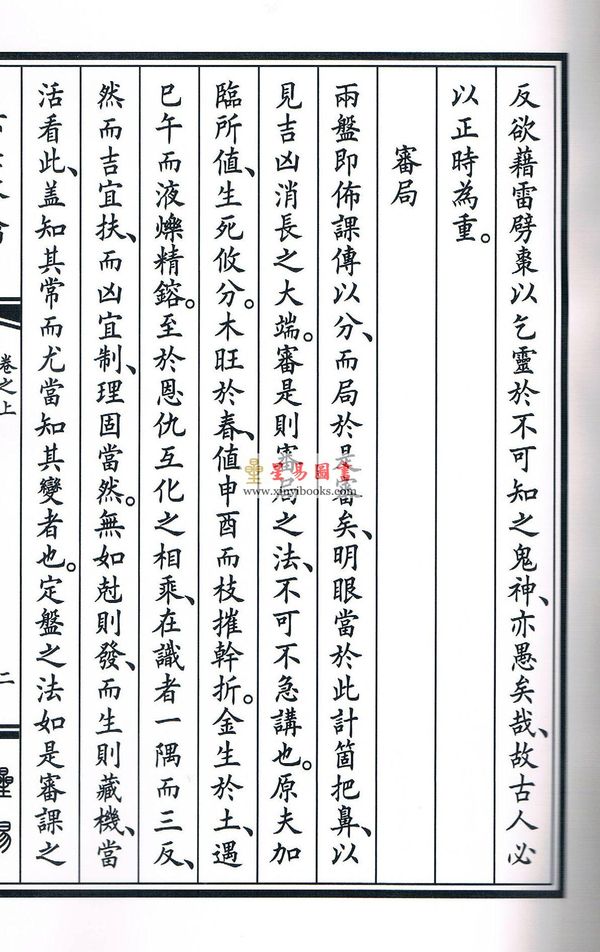 反欲藉雷劈棗以乞靈於不可知之鬼神、亦愚矣哉、故古人必
以正時為重。
審局
兩盤即佈課傳以分、而局於是審矣、明眼當於此計箇把鼻、以
見吉凶消長之大端。審是則審局之法、不可不急講也。原夫加
臨所值、生死攸分。木旺於春、值申酉而枝摧幹折。金生於土、遇
巳午而液爍精鎔。至於恩仇互化之相乘、在識者一隅而三反、
然而吉宜扶、而凶宜制、理固當然。無如尅則發、而生則藏機、當
活看此、盖知其常而尤當知其變者也。定盤之法如是審課之
卷之上
二
星易
星易圖書
www.xinyibooks.com